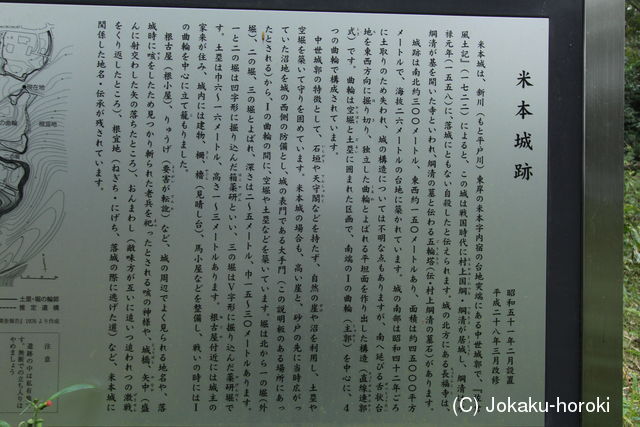 米本城跡
昭和五十一年二月設置
平成二十八年三月改修
米本城は、新川(もと平戸川)東岸の米本字内宿の台地突端にある中世城郭で、『
風土記(一七二二)によると、この城は戦国時代に村上国綱、綱清が居城し、綱清は
禄元年(一五五八)に、落城にともない自殺したと伝えられます。城の北方にある長福寺は、
綱清が墓を開いた寺といわれ、綱清の墓と伝わる五輪塔(伝・村上綱清の墓石)があります。
城跡は南北約三〇〇メートル、東西約一五〇メートルあり、面積は約四五〇〇〇平方
メートルで、海抜二六メートルの台地に築かれています。城の南部は昭和四十二年ごろ
に土取りのため失われ、城の構造については不明な点もありますが、南へ延びる舌状台
地を東西方向に掘り切り、独立した曲輪とよばれる平坦面を作り出した構造(直線連郭
式)です。曲輪は空堀と土塁に囲まれた区画で、南端のⅠの曲輪(主郭)を中心に、4
つの曲輪で構成されています。
中世城郭の特徴として、石垣や天守閣などを持たず、自然の崖や沼を利用し、土塁や
空堀を築いて守りを固めています。米本城の場合も、高い崖と、砂戸の先に当時広がっ
ていた沼地を城の西側の防備とし、城の表門である大手門(この説明板のある場所にあっ
たとされる)からⅠの曲輪の間に、空堀や土塁などを築いています。堀は北から一の堀(外
堀)、二の堀、三の堀とよばれ、深さは二~五メートル、巾一五~三〇メートルあります。
一と二の堀は四字形に掘り込んだ箱薬研といい、三の堀はV字形に掘り込んだ薬研堀で
す。土塁は巾六~一六メートル、高さ一~三メートルあります。根古屋付近には城主の
家来が住み、城内には建物、柵、櫓(見晴し台)、馬小屋などを整備し、戦いの時にはⅠ
の曲輪を中心に立て籠もりました。
根古屋(根小屋)、りゅうげ(要害が転訛)など、城の周辺でよく見られる地名や、落
城時に咳をしたため見つかり斬られた老兵を祀ったとされる咳の神様や、城橋、矢中(盛
んに射交わした矢の落ちたところ)、おんまわし(敵味方が互いに追いつ追われつの激戦
をくり返したところ)、根宜地(ねぎち・にげち、落城の際に逃げた道)など、米本城に
関係した地名・伝承が残されています。
現在地
根宜地
土塁・堀の輪郭
推定遺構
1976より作成
注意
遺跡の中は私有
す。無断での立ち入りは
やめましょう
(C) Jokaku-horoki